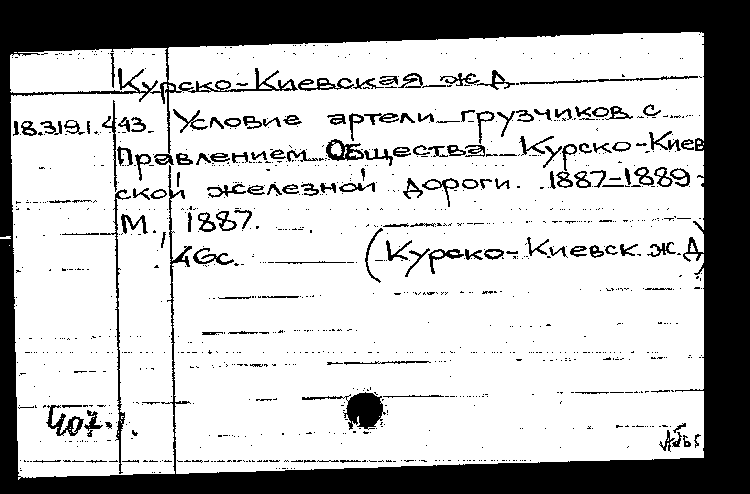 Курско-Киевская ж Д
18.319.1.443. Условие артели грузчиков с
Правлением Общества Курско-Киев
ской железной дороги. 1887-1889.
М., 1887.
46с. (Курско-Киевск. ж.Д)
407.1.